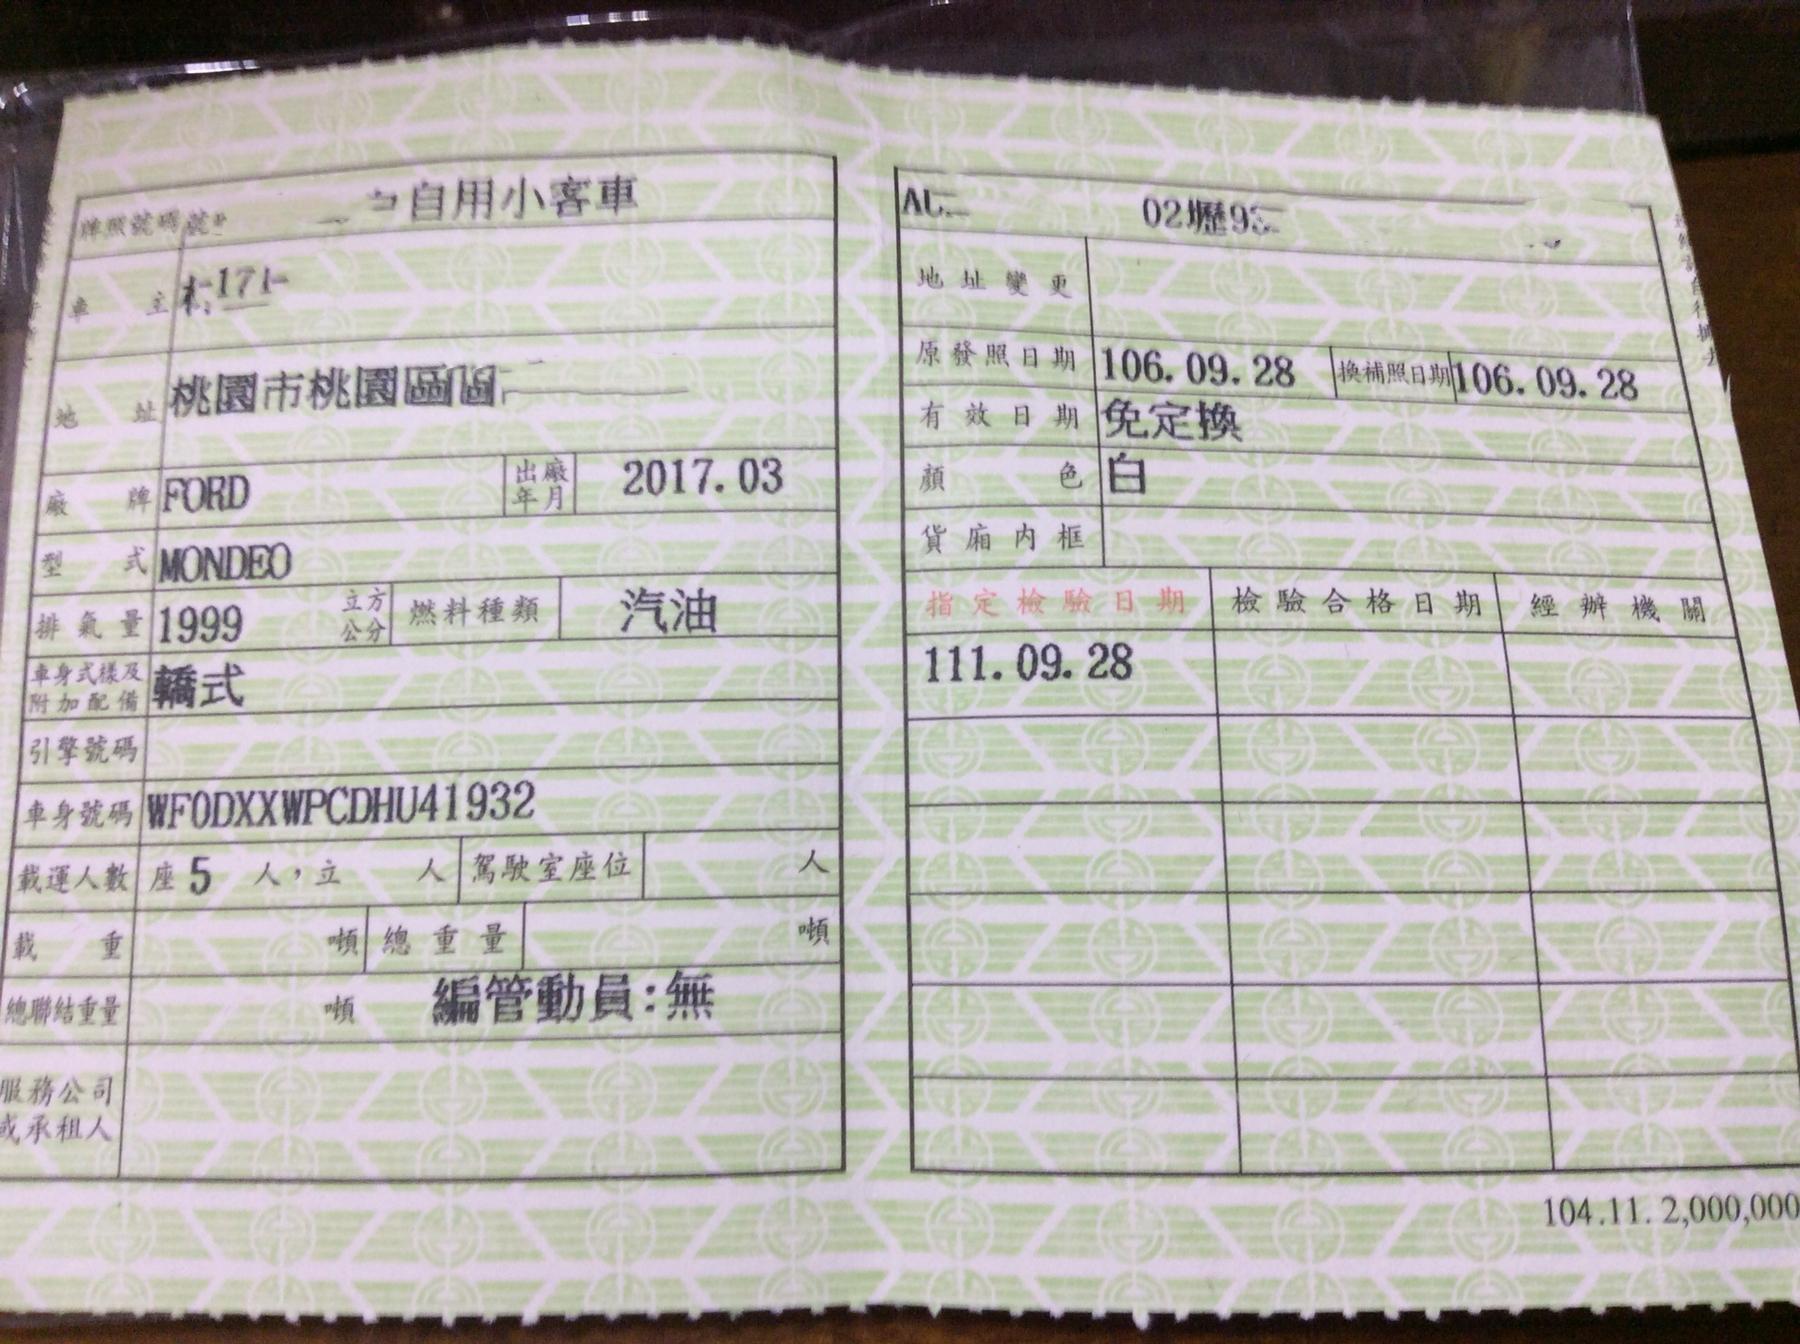 牌照號碼 自用小客車
車主
地址 桃園市桃園區
廠牌 FORD 出廠年月 2017.03
型式 MONDEO
排氣量 1999 立方公分 燃料種類 汽油
車身式樣及附加配備 轎式
引擎號碼
車身號碼 WF0DXXWPCDHU41932
載運人數 座 5 人，立 人 駕駛室座位 人
載重 噸 總重量 噸
總聯結重量 噸 編管動員:無
服務公司
或承租人
02壢93
地址變更
原發照日期 106.09.28 換補照日期 106.09.28
有效日期 免定換
顏色 白
貨廂內框
指定檢驗日期 檢驗合格日期 經辦機關
111.09.28
104.11. 2,000,000